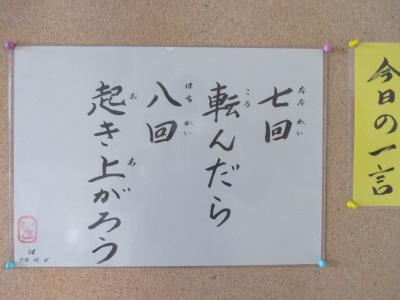 今日の一言
七回
なな かい
転んだら
ころ
八回
はち かい
起き上がろう
お あ